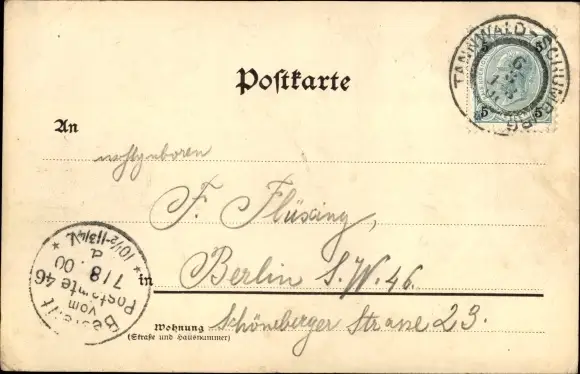 TANNWALD-SCHUMBURG
5 5
5 5
Postkarte
An
F. Flüsing,
in Berlin S.W. 46.
Wohnung Schöneberger Strasse 23.
(Straße und Hausnummer)
Bestellt
vom
Postamte 46
7/8 00